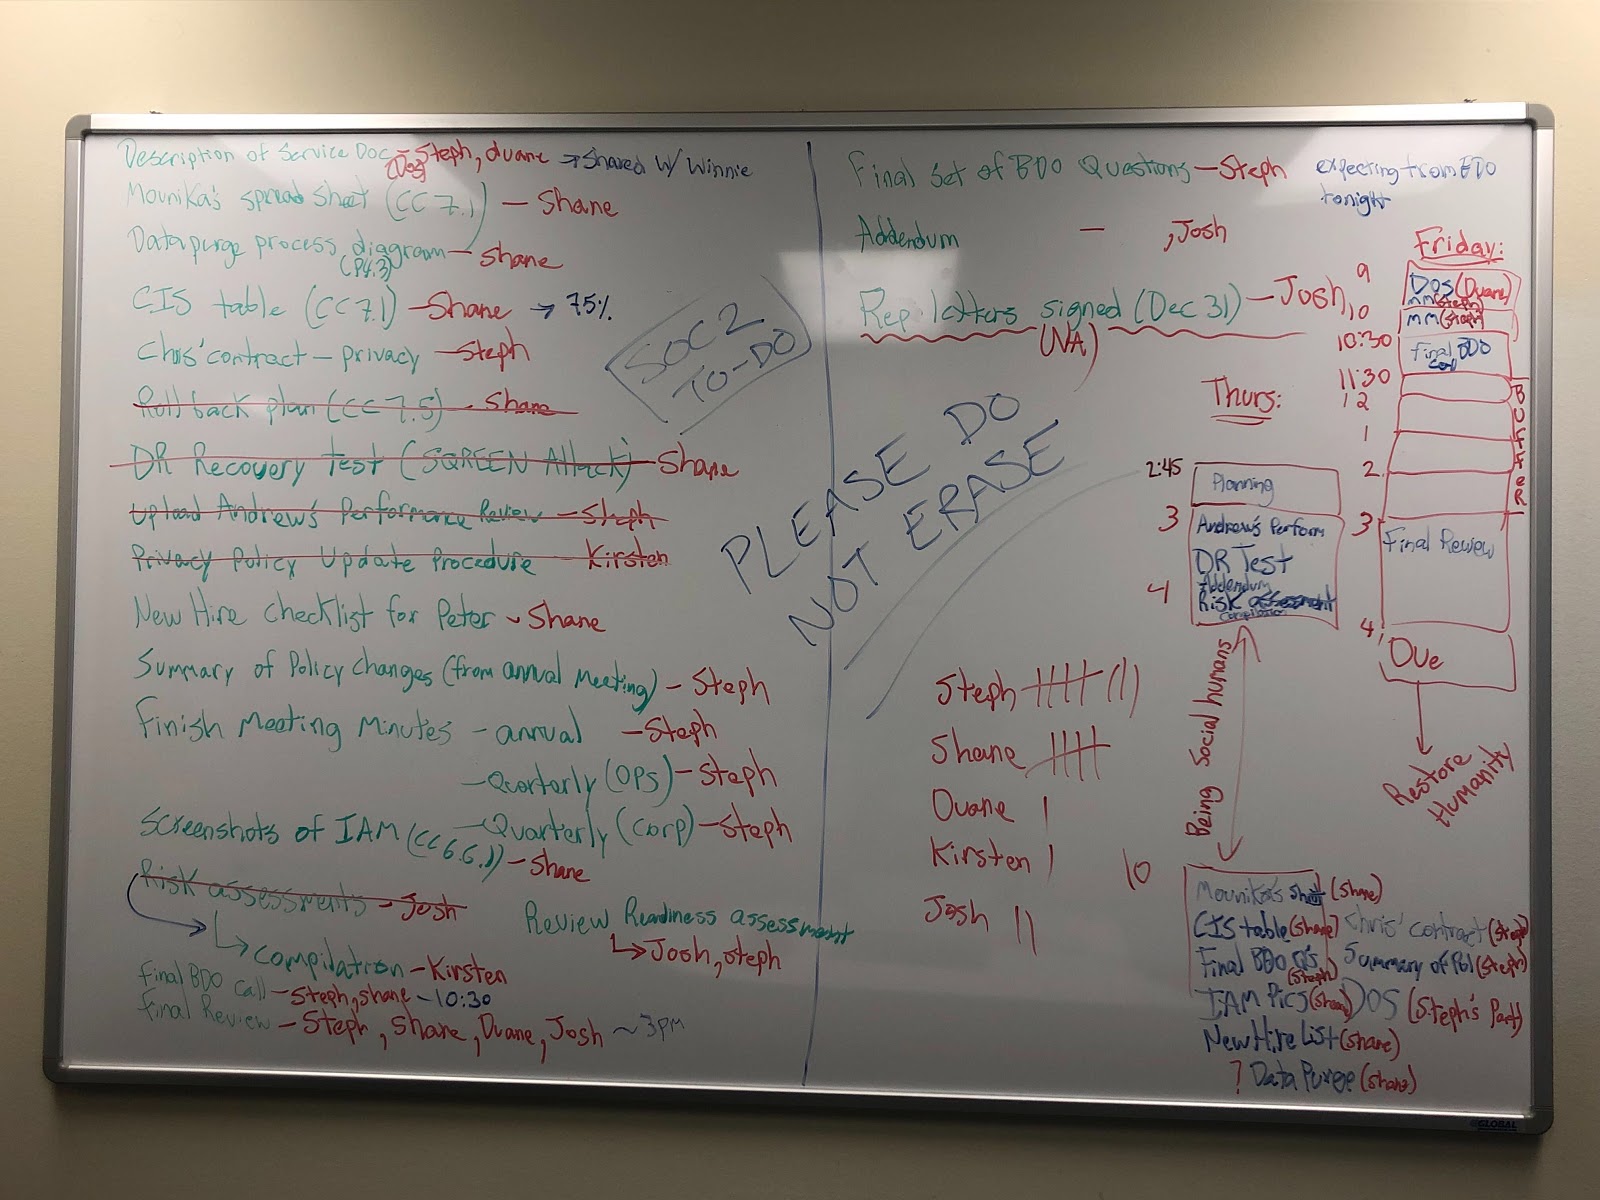 Description of Service Doc - Steph, Duane → Shared w/ Winnie
(Dos)
Mounika's spread sheet (CC 7.1) - Shane
Data purge process diagram - Shane
(P4.3)
CIS table (CC7.1) - Shane → 75%
Chris' contract - privacy - Steph
Roll back plan (CC 7.5) - Shane
DR Recovery Test (SQREEN Attack) - Shane
Upload Andrew's Performance Review - Steph
Privacy Policy Update Procedure - Kirsten
New Hire checklist for Peter - Shane
Summary of Policy changes (from annual meeting) - Steph
Finish Meeting Minutes - annual - Steph
- Quarterly (OPS) - Steph
- Quarterly (Corp) - Steph
Screenshots of IAM (CC6.6.1) - Shane
Risk assessments - Josh
→ compilation - Kirsten
Review Readiness assessment
→ Josh, Steph
Final BDO call - Steph, Shane - 10:30
Final Review - Steph, Shane, Duane, Josh ~ 3pm
SOC 2
TO-DO
PLEASE DO
NOT ERASE
Final set of BDO Questions - Steph
expecting from BDO
tonight
Addendum - , Josh
Rep letters signed (Dec 31) - Josh
(NA)
Friday:
9
DOS (Duane)
MM (Steph)
10
MM (Steph)
10:30
Final BDO
call
11:30
12
1
2
BUFFeR
3
Final Review
4
Due
Restore
Humanity
Thurs:
2:45
Planning
3
Andrew's Perform
DR Test
Addendum
4
Risk assessment
compilation
Being Social humans
10
Mounika's sheet (Shane)
CIS table (Shane) Chris' contract (Steph)
Final BDO Q's (Steph) Summary of Pol (Steph)
IAM Pics (Shane) DOS (Steph's Part)
New Hire List (Shane)
? Data Purge (Shane)
Steph
Shane
Duane
Kirsten
Josh
GLOBAL